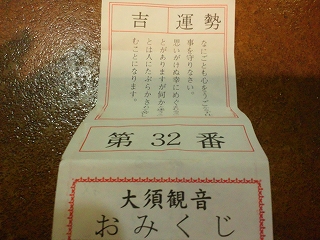 吉 運勢
なにごとも心をうごかさず
事を守りなさい。
思いがけぬ幸にめぐ
とがありますが何か
とは人にたぶらかされ
むことになります。
第32番
大須観音
おみくじ